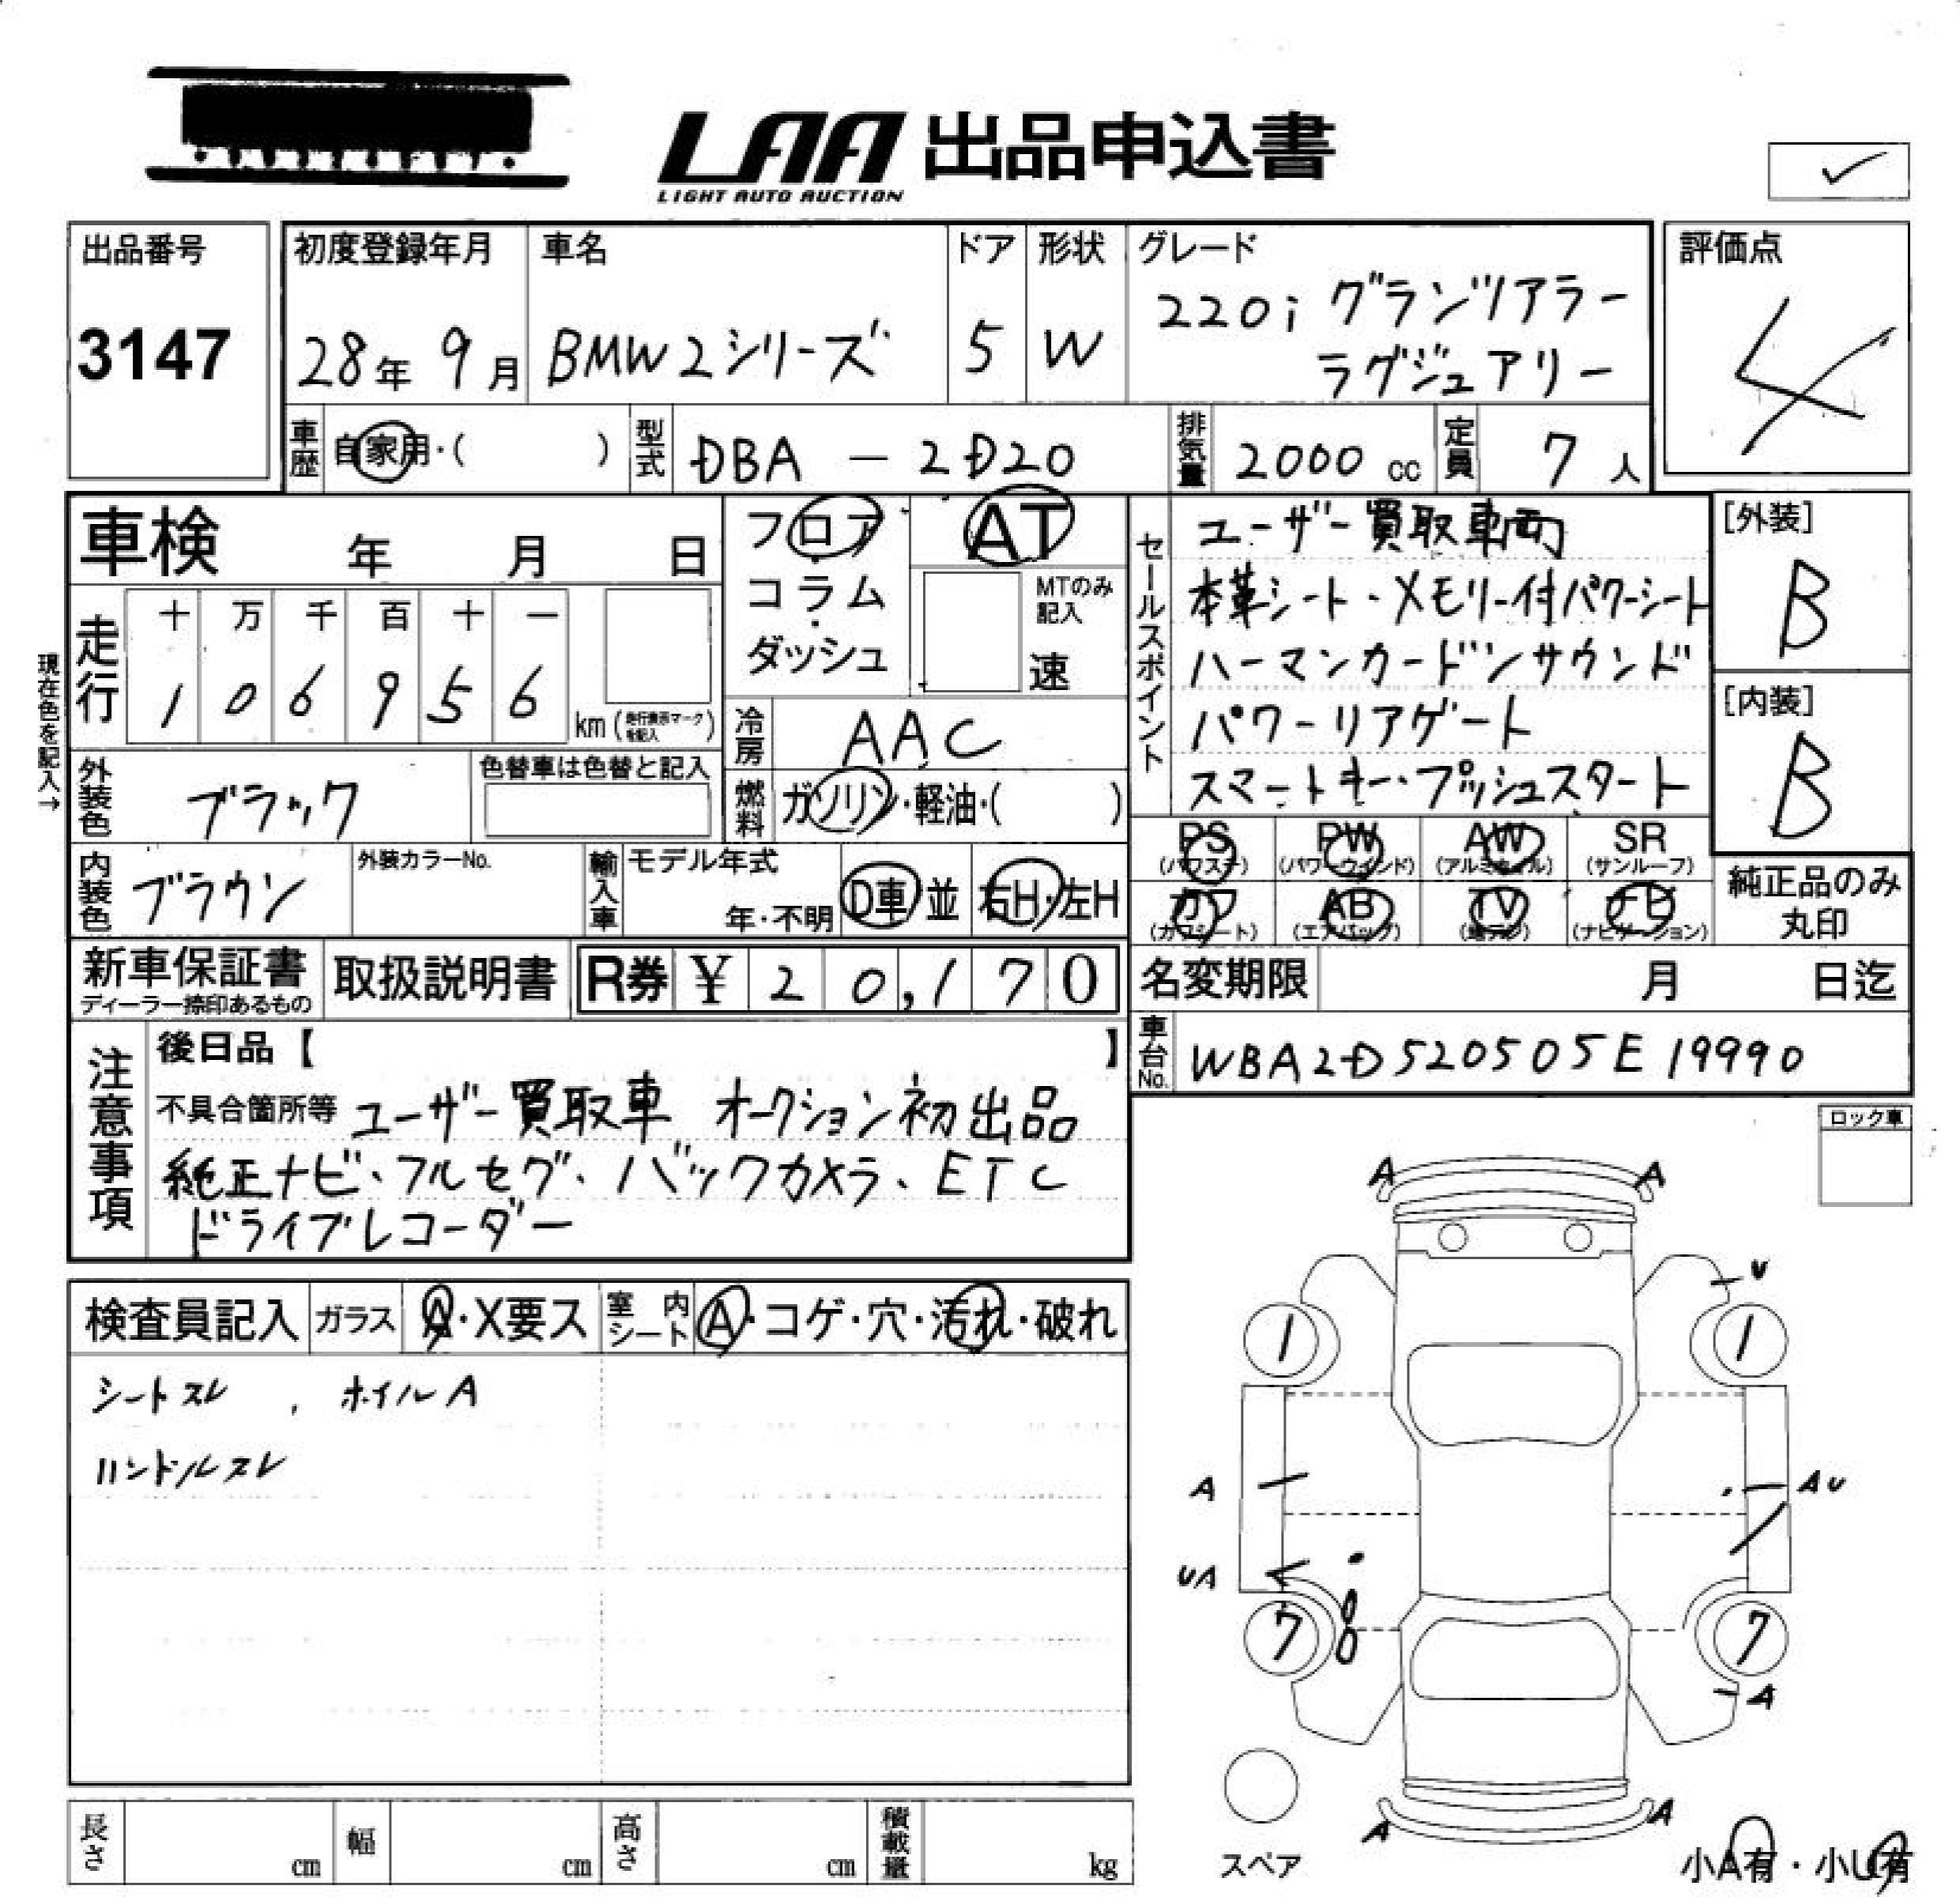 LAA 出品申込書
LIGHT AUTO AUCTION
出品番号
3147
初度登録年月
28年 9月
車名
BMW2シリーズ
ドア
5
形状
W
グレード
220i グランツアラー
ラグジュアリー
評価点
4
車歴
自家用・( )
型式
DBA - 2D20
排気量
2000 cc
定員
7 人
車検 年 月 日
走行
十 万 千 百 十 一
1 0 6 9 5 6
km (走行表示マークを記入)
現在色を記入→
フロア・コラム・ダッシュ
AT
MTのみ記入
速
冷房
AAC
燃料
ガソリン・軽油・( )
外装色
ブラック
色替車は色替と記入
内装色
ブラウン
外装カラーNo.
輸入車
モデル年式
年・不明
D車・並
右H・左H
セールスポイント
ユーザー買取車両
本革シート・メモリー付パワーシート
ハーマンカードンサウンド
パワーリアゲート
スマートキー・プッシュスタート
[外装]
B
[内装]
B
PS (パワステ)
PW (パワーウィンド)
AW (アルミホイル)
SR (サンルーフ)
カワ (カワシート)
AB (エアバック)
TV (地デジ)
ナビ (ナビゲーション)
純正品のみ
丸印
新車保証書
ディーラー捺印あるもの
取扱説明書
R券 ¥ 20,170
名変期限 月 日迄
車台No.
WBA2D520505E19990
注意事項
後日品【 】
不具合箇所等 ユーザー買取車 オークション初出品
純正ナビ・フルセグ、バックカメラ、ETC
ドライブレコーダー
ロック車
検査員記入
ガラス
A・X要ス
室内シート
A・コゲ・穴・汚れ・破れ
シートスレ , ホイルA
ハンドルスレ
A A
U
1 1
A AU
UA
7 7
A
A A
スペア
小A有・小U有
長さ cm
幅 cm
高さ cm
積載量 kg